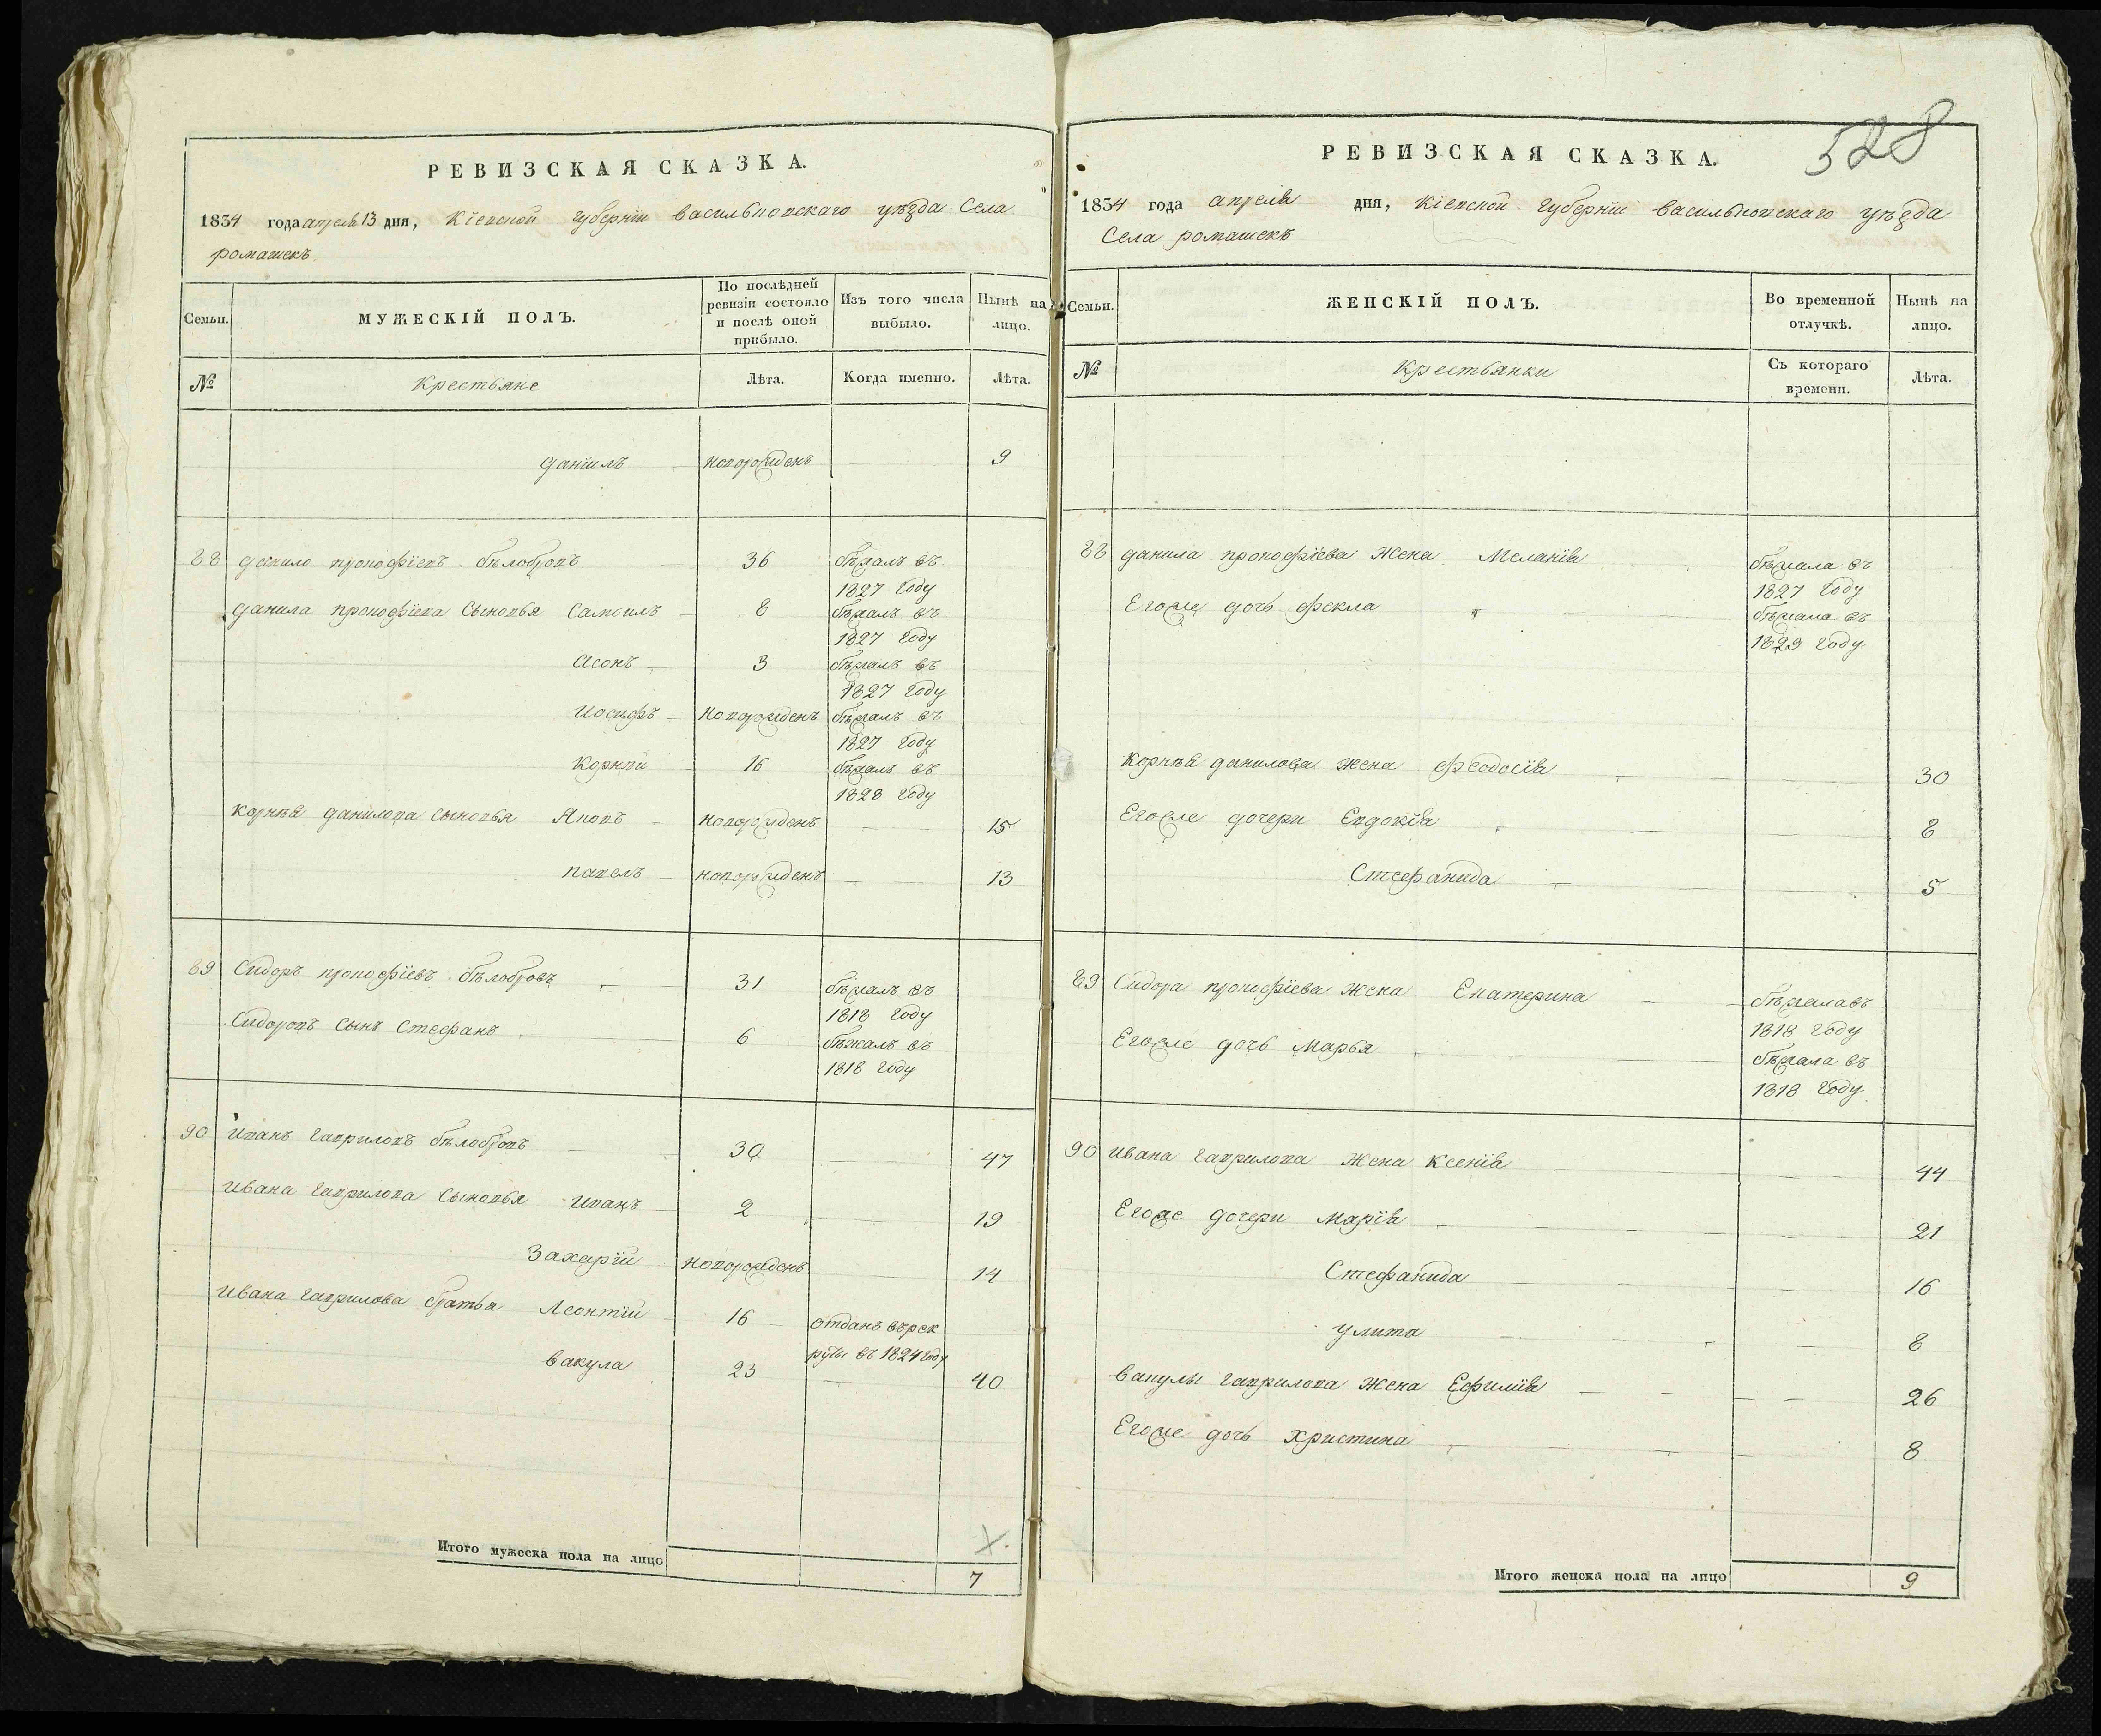 528
РЕВИЗСКАЯ СКАЗКА.
1834 года апреля 13 дня, Кіевской губерніи васильковскаго уѣзда Села
ромашекъ
Семьи.
МУЖЕСКІЙ ПОЛЪ.
По послѣдней
ревизіи состояло
и послѣ оной
прибыло.
Изъ того числа
выбыло.
Нынѣ на
лицо.
№
Крестьяне
Лѣта.
Когда именно.
Лѣта.
даніилъ новорожденъ 9
88 данило прокофіевъ бѣлобровъ 36 бѣжалъ въ
1827 году
данила прокофіева сыновья Самоилъ 8 бѣжалъ въ
1827 году
Асонъ 3 бѣжалъ въ
1827 году
Иосифъ новорожденъ бѣжалъ въ
1827 году
Корнѣй 16 бѣжалъ въ
1828 году
Корнѣя данилова сыновья Яковъ новорожденъ 15
павелъ новорожденъ 13
89 Сидоръ прокофіевъ бѣлобровъ 31 бѣжалъ въ
1818 году
Сидоровъ сынъ Стефанъ 6 бѣжалъ въ
1818 году
90 Иванъ гавриловъ бѣлобровъ 30 47
Ивана гаврилова сыновья Иванъ 2 19
Захарій новорожденъ 14
Ивана гаврилова братья Леонтій 16 отданъ въ рек
руты въ 1824 году
вакула 23 40
Итого мужеска пола на лицо 7
РЕВИЗСКАЯ СКАЗКА.
1834 года апреля дня, Кіевской губерніи васильковскаго уѣзда
Села ромашекъ
Семьи.
ЖЕНСКІЙ ПОЛЪ.
Во временной
отлучкѣ.
Нынѣ на
лицо.
№
Крестьянки
Съ котораго
времени.
Лѣта.
88 данила прокофіева жена Меланія бѣжала въ
1827 году
Егоже дочь фекла бѣжала въ
1829 году
Корнѣя данилова жена феодосія 30
Егоже дочери Евдокія 8
Стефанида 5
89 Сидора прокофіева жена Екатерина бѣжала въ
1818 году
Егоже дочь Марья бѣжала въ
1818 году
90 Ивана гаврилова жена Ксенія 44
Егоже дочери Марія 21
Стефанида 16
улита 8
вакулы гаврилова жена Ефимія 26
Егоже дочь Христина 8
Итого женска пола на лицо 9